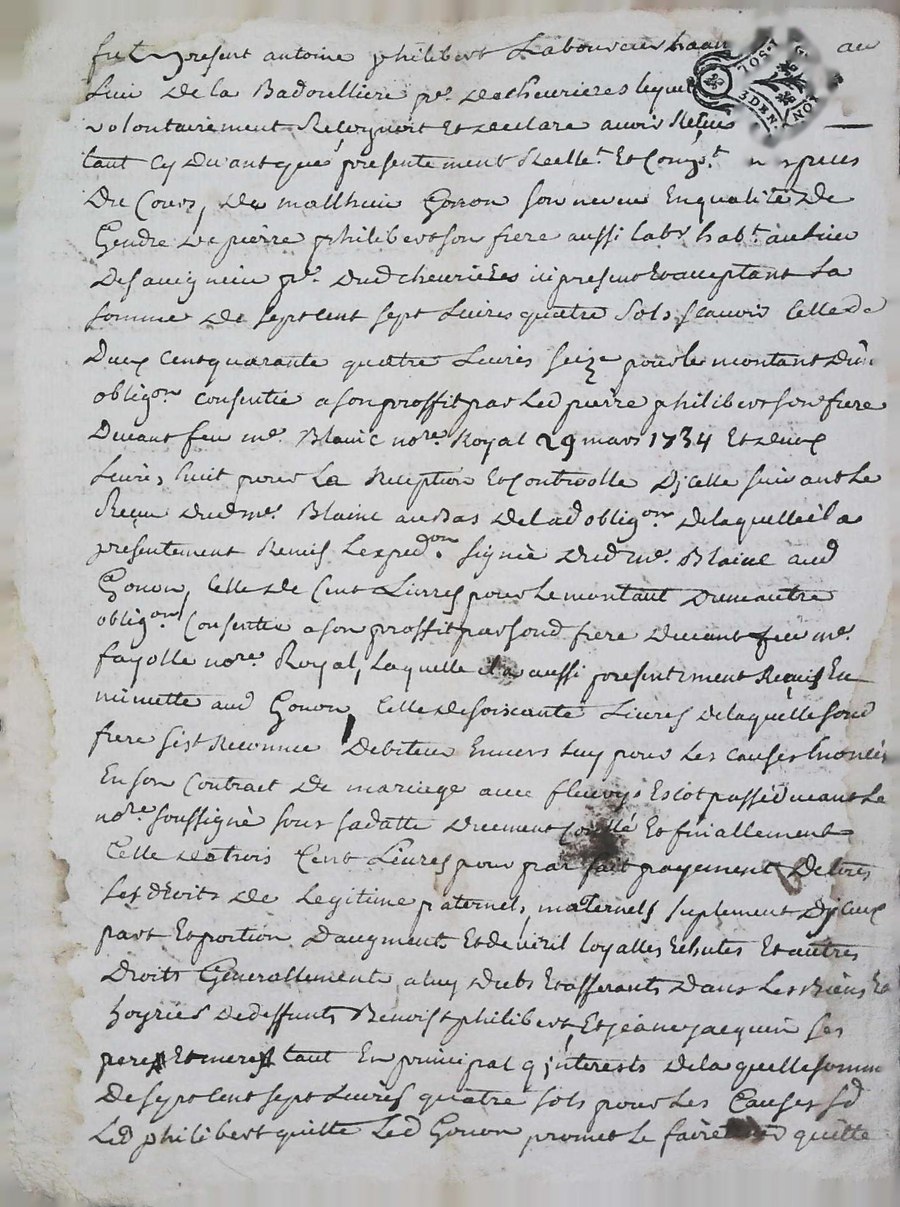 fut present antoine philibert Laboureur au
Lieu de la Badoulliere pr. de cheurieres
volontairement Recognoit Et declare avoir Reçeu
tant Cy devant que presentement Reellt. Et Compt. especes
Du Cours, de matthieu Gonon son neveu En qualité de
Gendre de pierre philibert son frere aussi labr habt. au lieu
pr. dud cheurieres icy present Et acceptant La
somme de sept Cent sept Livres quatre Sols, scavoir Celle de
Deux Cent quarante quatre Livres seize pour le montant D'un
obligon Consentie a son proffit par Led pierre philibert son frere
Devant feu me. Blainc nore. Royal 29 mars 1734 Et deux
Livres huit pour La Reception Et Controlle D'icelle suivant Le
Reçeu dud me. Blainc au Bas De lad obligon De laquelle il a
presentement Remis L'expedon. signée dud me. Blainc aud
Gonon, Celle de Cent Livres pour Le montant D'une autre
obligon Consentie a son proffit par sond frere Devant feu me.
fayolle nore. Royal, Laquelle il a aussi presentement Remis En
minutte aud Gonon, Celle de soixante Livres de laquelle sond
frere s'est Reconnue Debiteur Envers Luy pour Les causes
En son Contract de mariage avec fleury Escot passé Devant Le
nore. soussigné sous sa datte Et finallement
Celle de trois Cent Livres pour parfait payement De tous
ses droits de Legitime paternels, maternels suplement D'iceux
part Et portion D'augment Et de viril loyalles Echutes Et autres
Droits Generallement a luy dubs Et afferants dans Les Biens Et
hoyries de deffunts Benoist philibert Et jeane jacquin ses
pere Et mere tant En principal q' interests de laquelle somme
De sept cent sept Livres quatre sols pour Les Causes sd
Led philibert quitte Led Gonon promet Le faire quitte
3 DEN.